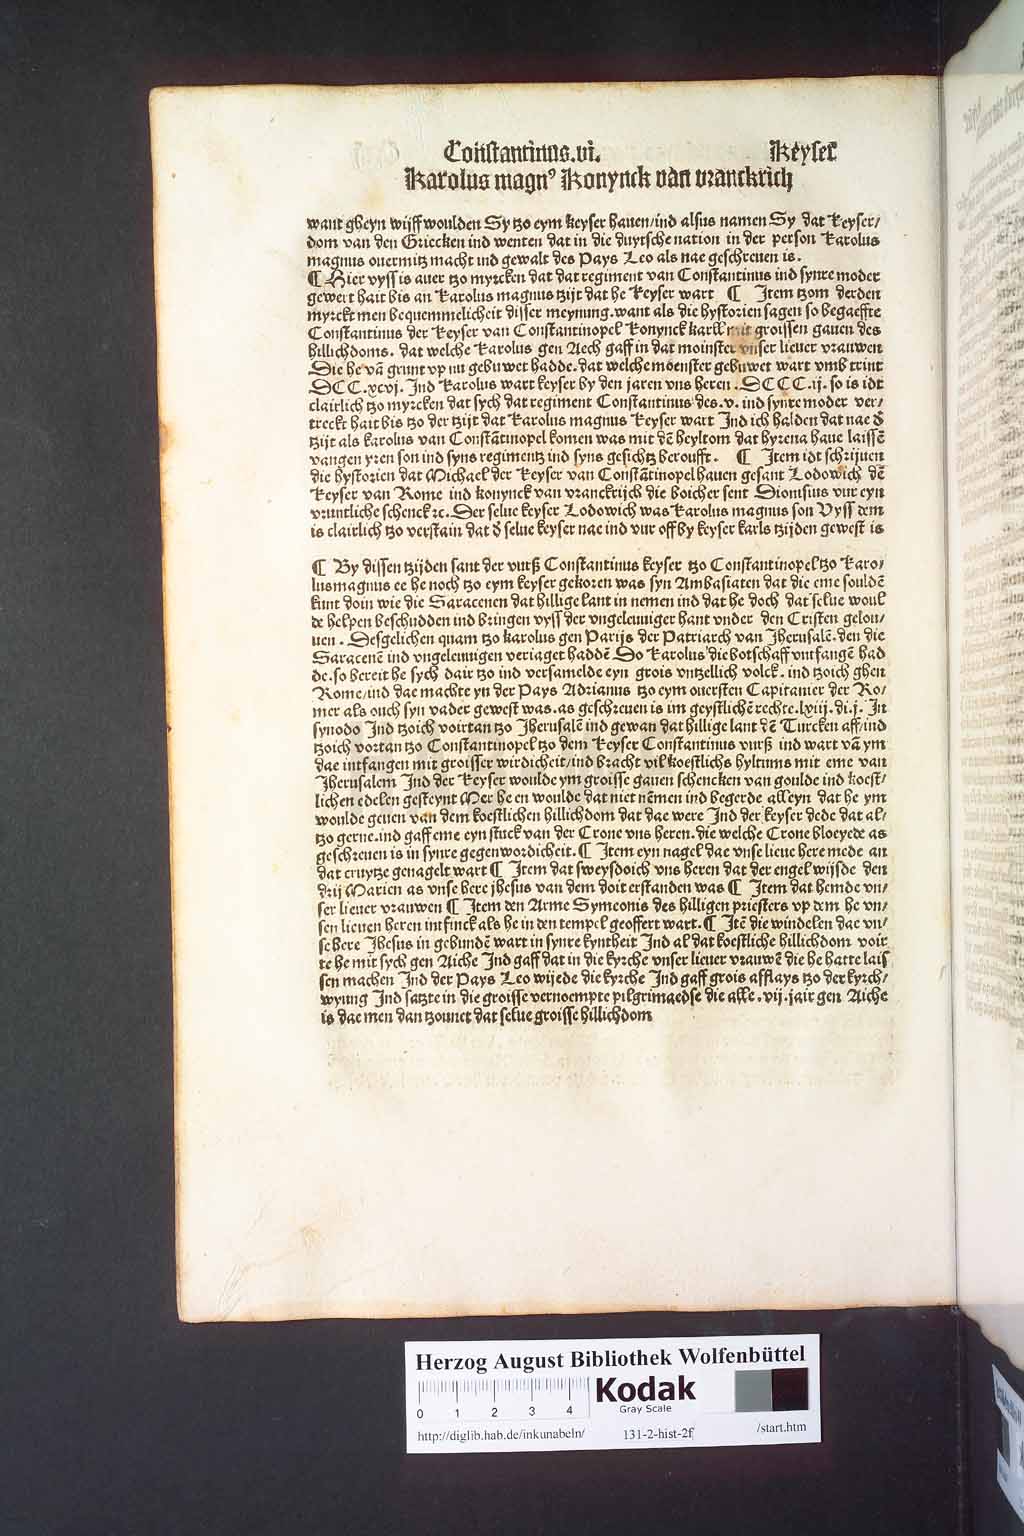 Constantinus.vi. Keyser
Karolus magnꝰ Konynck van vranckrich
want gheyn wijff woulden Sy tzo eym keyser hauen/ind alsus namen Sy dat keyser/
dom van den Griecken ind wenten dat in die duytsche nation in der person Karolus
magnus ouermitz macht ind gewalt des Pays Leo als nae geschreuen is.
¶ Hier vyss is auer tzo myrcken dat dat regiment van Constantinus ind synre moder
gewert hait bis an karolus magnus tzijt dat he keyser wart ¶ Item tzom derden
myrckt men bequemmelicheit disser meynung. want als die hystorien sagen so begaeffte
Constantinus der keyser van Constantinopel konynck karll mit groissen gauen des
hillichdoms. dat welche karolus gen Aech gaff in dat moinster vnser lieuer vrauwen
Die he vā grunt vp nu gebuwet hadde. dat welche moenster gebuwet wart vmb trint
DCC.xcvj. Ind karolus wart keyser by den jaren vns heren .DCCC.ij. so is idt
clairlich tzo myrcken dat sych dat regiment Constantinus des .v. ind synre moder ver/
treckt hait bis tzo der tzijt dat karolus magnus keyser wart Ind ich halden dat nae đ
tzijt als karolus van Constātinopel komen was mit dē heyltom dat hyrena haue laissē
vangen yren son ind syns regimentz ind syns gesichtz beroufft. ¶ Item idt schrijuen
die hystorien dat Michael der keyser van Constātinopel hauen gesant Lodowich dē
keyser van Rome ind konynck van vranckrijch die boicher sent Dionisius vur eyn
vruntliche schenck ⁊c. Der selue keyser Lodowich was karolus magnus son Vyss dem
is clairlich tzo verstain dat đ selue keyser nae ind vur off by keyser karls tzijden gewest is
¶ By dissen tzijden sant der vurß Constantinus keyser tzo Constantinopel tzo karo/
lus magnus ee he noch tzo eym keyser gekoren was syn Ambasiaten dat die eme souldē
kunt doin wie die Saracenen dat hillige lant in nemen ind dat he doch dat selue woul
de helpen beschudden ind bringen vyss der vngeleuuiger hant vnder den Cristen gelou/
uen. Desgelichen quam tzo karolus gen Parijs der Patriarch van Jherusalē. den die
Saracenē ind vngeleuuigen veriaget haddē Do karolus die botschaff vntfangē had
de. so bereit he sych dair tzo ind versamelde eyn grois vntzellich volck. ind tzoich ghen
Rome/ind dae machte yn der Pays Adrianus tzo eym ouersten Capitanier der Ro/
mer als ouch syn vader gewest was. as geschreuen is im geystlichē rechte. lxiij. di. j. In
synodo Ind tzoich voirtan tzo Jherusalē ind gewan dat hillige lant dē Turcken aff/ind
tzoich vortan tzo Constantinopel tzo dem keyser Constantinus vurß ind wart vā ym
dae intfangen mit groisser wirdicheit/ind bracht vil koestlichs hyltums mit eme van
Jherusalem Ind der keyser woulde ym groisse gauen schencken van goulde ind koest/
lichen edelen gesteynt Mer he en woulde dat niet nēmen ind begerde alleyn dat he ym
woulde geuen van dem koestlichen hillichdom dat dae were Ind der keyser dede dat al/
tzo gerne. ind gaff eme eyn stuck van der Crone vns heren. die welche Crone bloeyede as
geschreuen is in synre gegenwordicheit. ¶ Item eyn nagel dae vnse lieue here mede an
dat cruytze genagelt wart ¶ Item dat sweysdoich vns heren dat der engel wijsde den
drij Marien as vnse here jhesus van dem doit erstanden was ¶ Item dat hemde vn/
ser lieuer vrauwen ¶ Item den Arme Symeonis des hilligen priesters vp dem he vn/
sen lieuen heren intfinck als he in den tempel geoffert wart. ¶ Itē die windelen dae vn/
se here Jhesus in gebundē wart in synre kyntheit Ind al dat koestliche hillichdom voir
te he mit sych gen Aiche Ind gaff dat in die kyrche vnser lieuer vrauwē die he hatte lais
sen machen Ind der Pays Leo wijede die kyrche Ind gaff grois afflays tzo der kyrch/
wyung Ind satzte in die groisse vernoempte pilgrimaedse die alle .vij. jair gen Aiche
is dae men dan tzounet dat selue groisse hillichdom
Herzog August Bibliothek Wolfenbüttel
0 1 2 3 4
Kodak
Gray Scale
http://diglib.hab.de/inkunabeln/ 131-2-hist-2f /start.htm